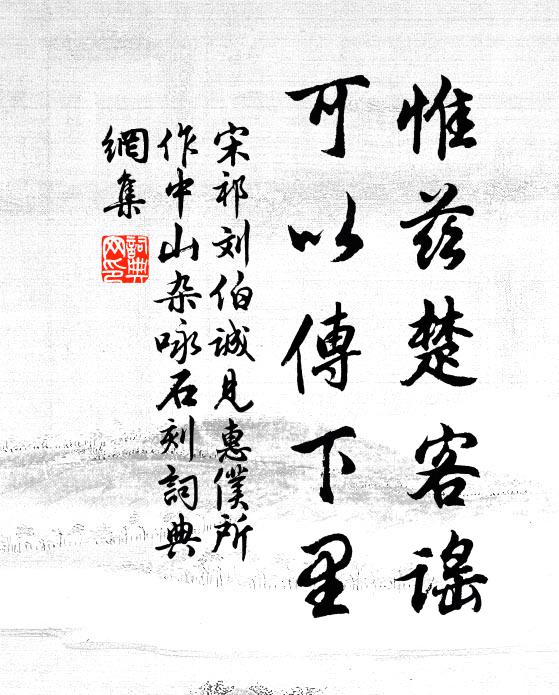 惟茲楚客謠
可以傳下里
宋祁刘伯诚見惠僕所
作中山杂咏石刻詞典
網集
詞典
网印